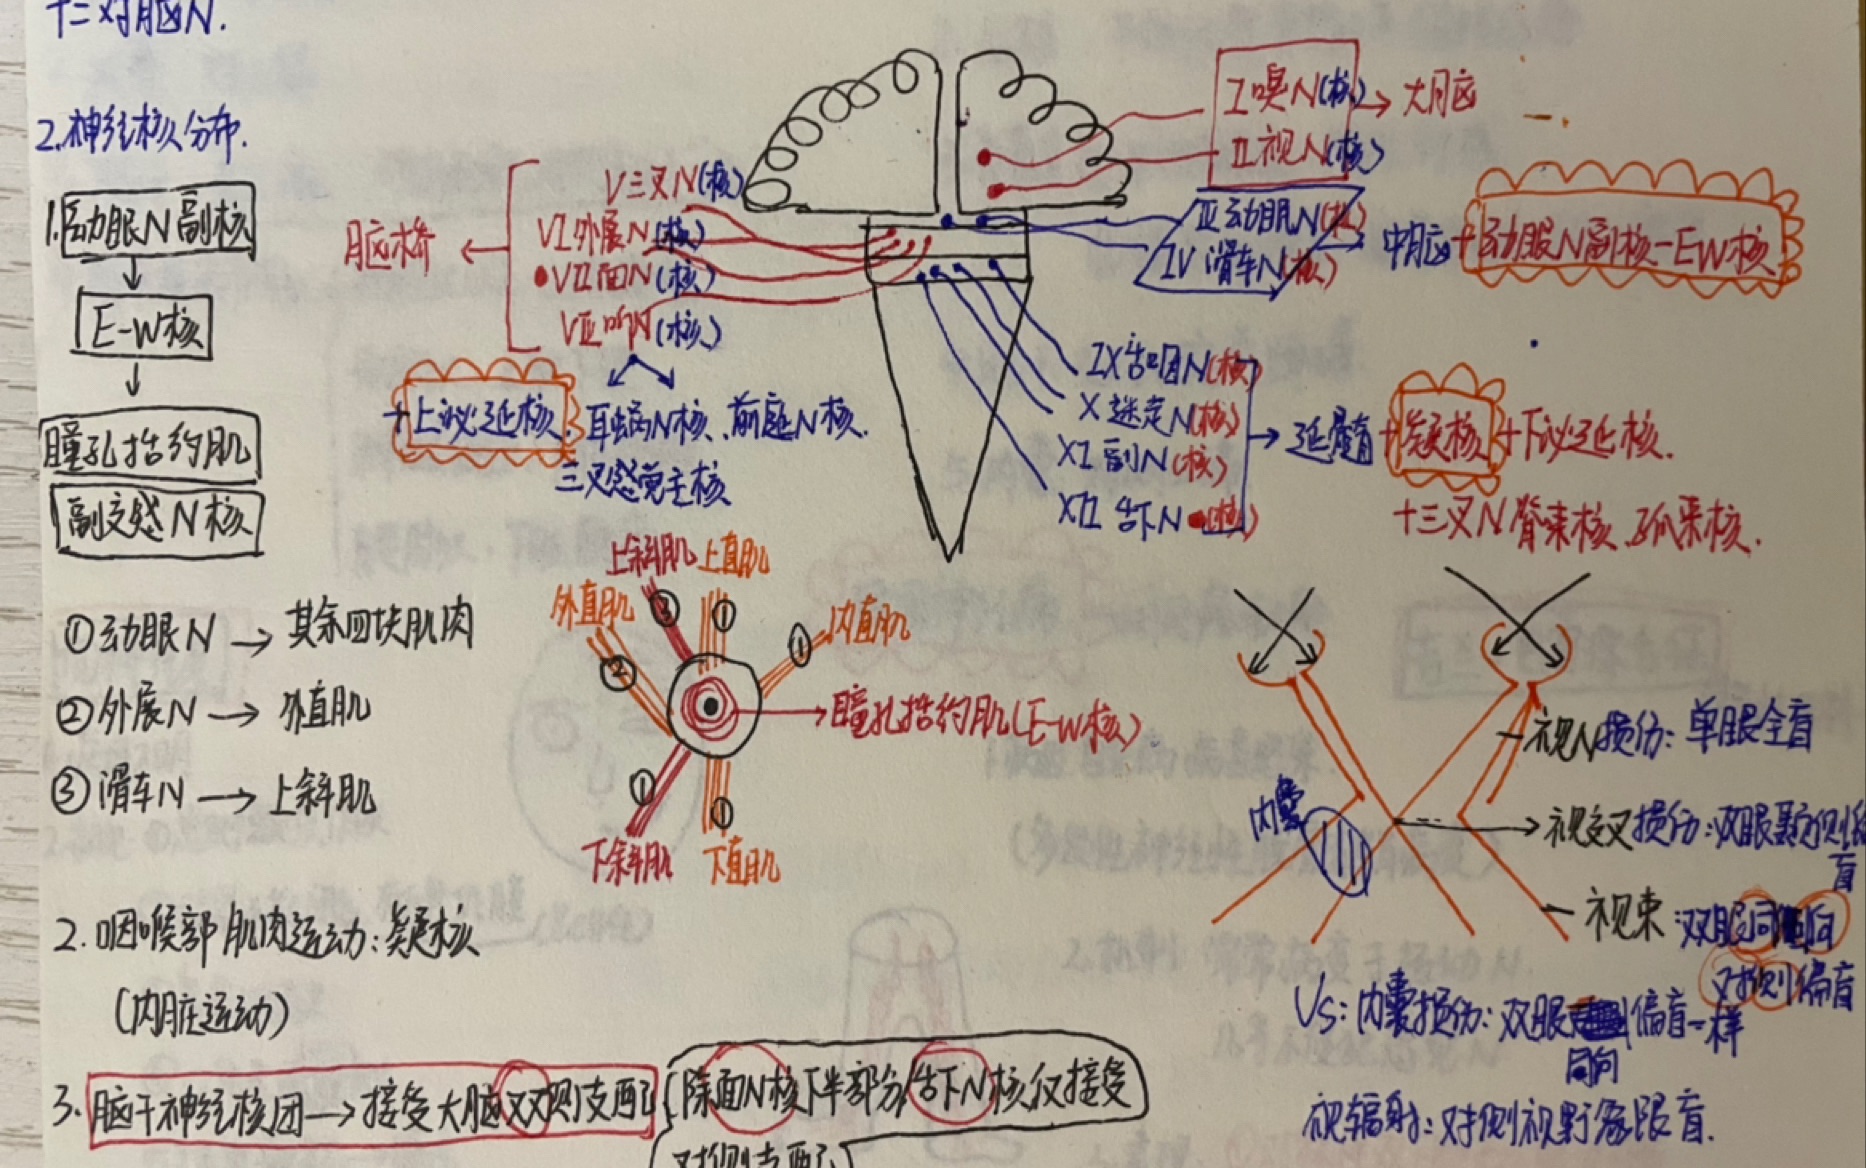 十二对脑N.
2.神经核分布.
1.动眼N副核
E-W核
瞳孔括约肌
副交感N核
脑桥
V三叉N(核)
VI外展N(核)
VII面N(核)
VIII听N(核)
+上泌涎核
耳蜗N核、前庭N核.
三叉感觉主核
I嗅N(核)
II视N(核)
大脑
III动眼N(核)
IV滑车N(核)
中脑+动眼N副核-EW核
IX舌咽N(核)
X迷走N(核)
XI副N(核)
XII舌下N(核)
延髓+疑核+下泌涎核.
+三叉N脊束核、孤束核.
①动眼N→其余四块肌肉
②外展N→外直肌
③滑车N→上斜肌
上斜肌 上直肌
外直肌
内直肌
③ ①
② ①
瞳孔括约肌(E-W核)
① ①
下斜肌 下直肌
视N损伤:单眼全盲
内囊
视交叉损伤:双眼颞侧偏
盲
视束:双眼同向
对侧偏盲
Vs:内囊损伤:双眼偏盲一样
同向
视辐射:对侧视野象限盲.
2.咽喉部肌肉运动:疑核
(内脏运动)
3.脑干神经核团→接受大脑双侧支配
除面N核下半部分/舌下N核仅接受
对侧支配